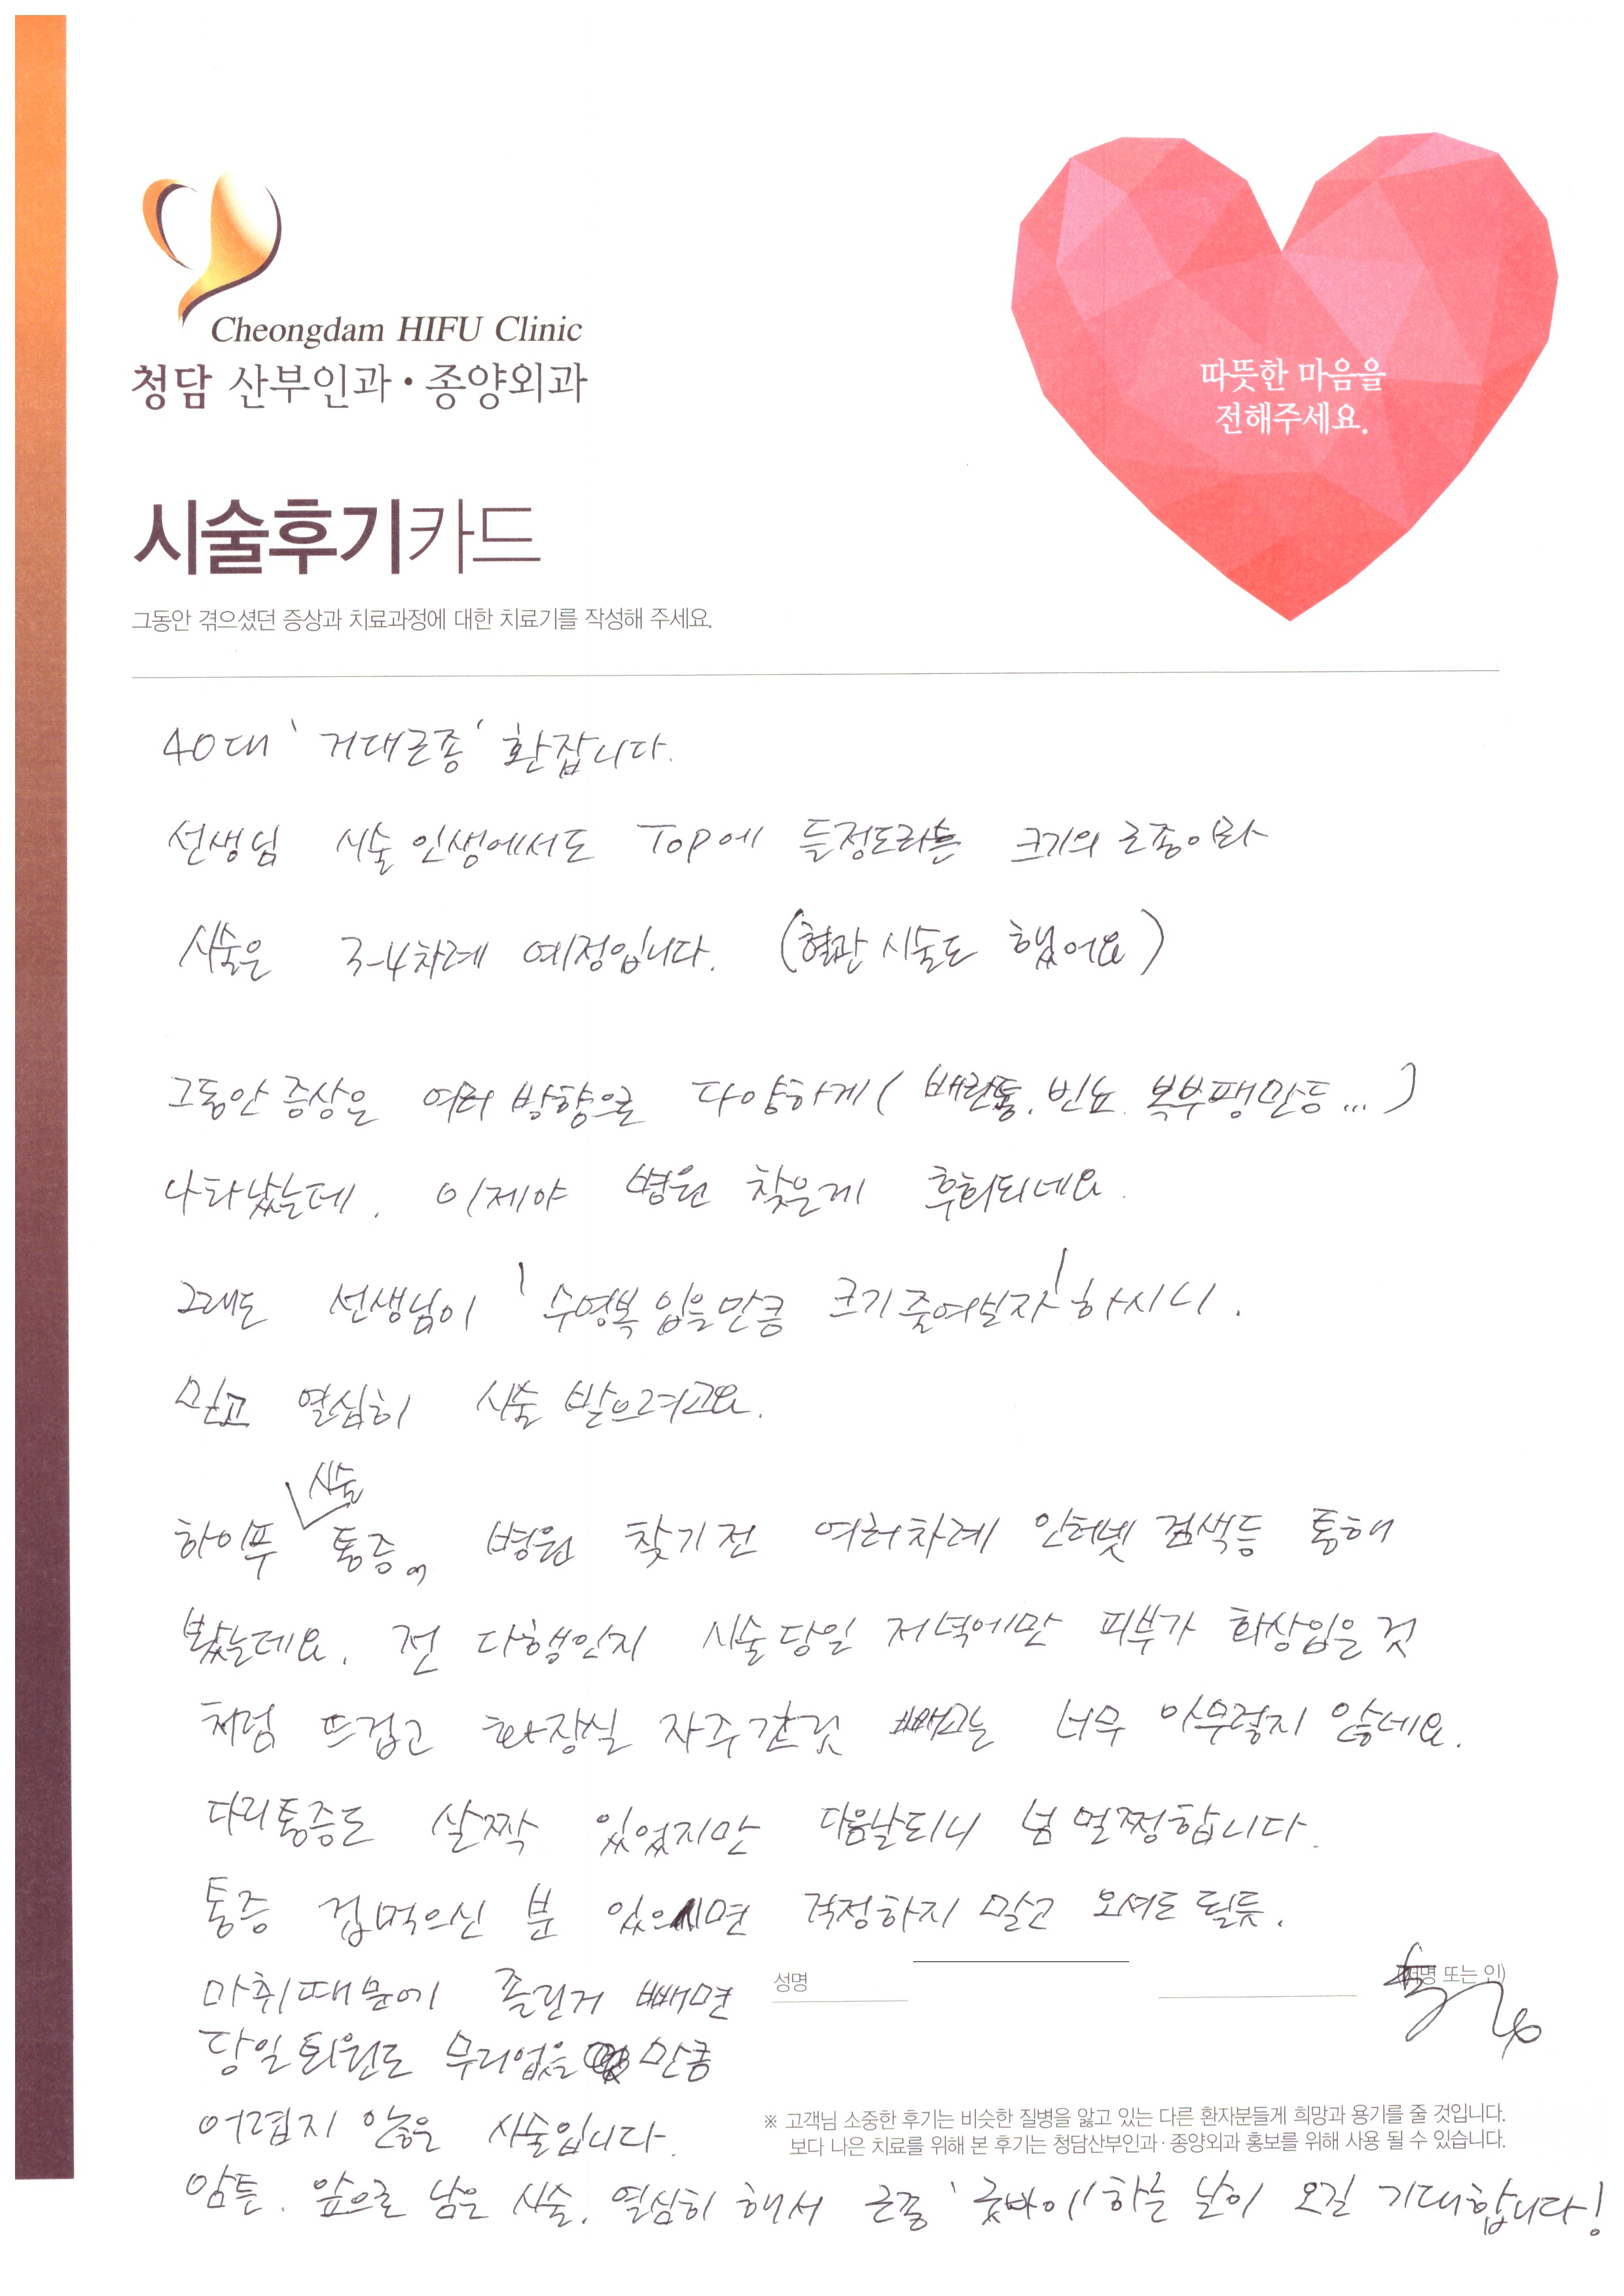 Cheongdam HIFU Clinic
청담 산부인과·종양외과
따뜻한 마음을
전해주세요.
시술후기카드
그동안 겪으셨던 증상과 치료과정에 대한 치료기를 작성해 주세요.
40대 '거대근종' 환잡니다.
선생님 시술 인생에서도 Top에 들정도라는 크기의 근종이라
시술은 3-4차례 예정입니다. (혈관 시술도 했어요)
그동안 증상은 여러 방향으로 다양하게 (배란통, 빈뇨, 복부팽만등...)
나타났는데, 이제야 병원 찾은게 후회되네요.
그래도 선생님이 '수영복 입을만큼 크기 줄여보자' 하시니,
믿고 열심히 시술 받으려고요.
하이푸 시술 통증, 병원 찾기전 여러차례 인터넷 검색등 통해
봤는데요, 전 다행인지 시술당일 저녁에만 피부가 화상입은 것
처럼 뜨겁고 화장실 자주간것 빼고는 너무 아무렇지 않네요.
다리통증도 살짝 있었지만 다음날되니 넘 멀쩡합니다.
통증 겁먹으신 분 있으시면 걱정하지 말고 오셔도 될듯.
마취때문에 졸린거 빼면
성명
또는 인)
당일퇴원도 무리없을 만큼
어렵지 않은 시술입니다.
※ 고객님 소중한 후기는 비슷한 질병을 앓고 있는 다른 환자분들게 희망과 용기를 줄 것입니다.
보다 나은 치료를 위해 본 후기는 청담산부인과·종양외과 홍보를 위해 사용 될 수 있습니다.
암튼, 앞으로 남은 시술, 열심히 해서 근종 '굿바이' 하는 날이 오길 기대합니다!